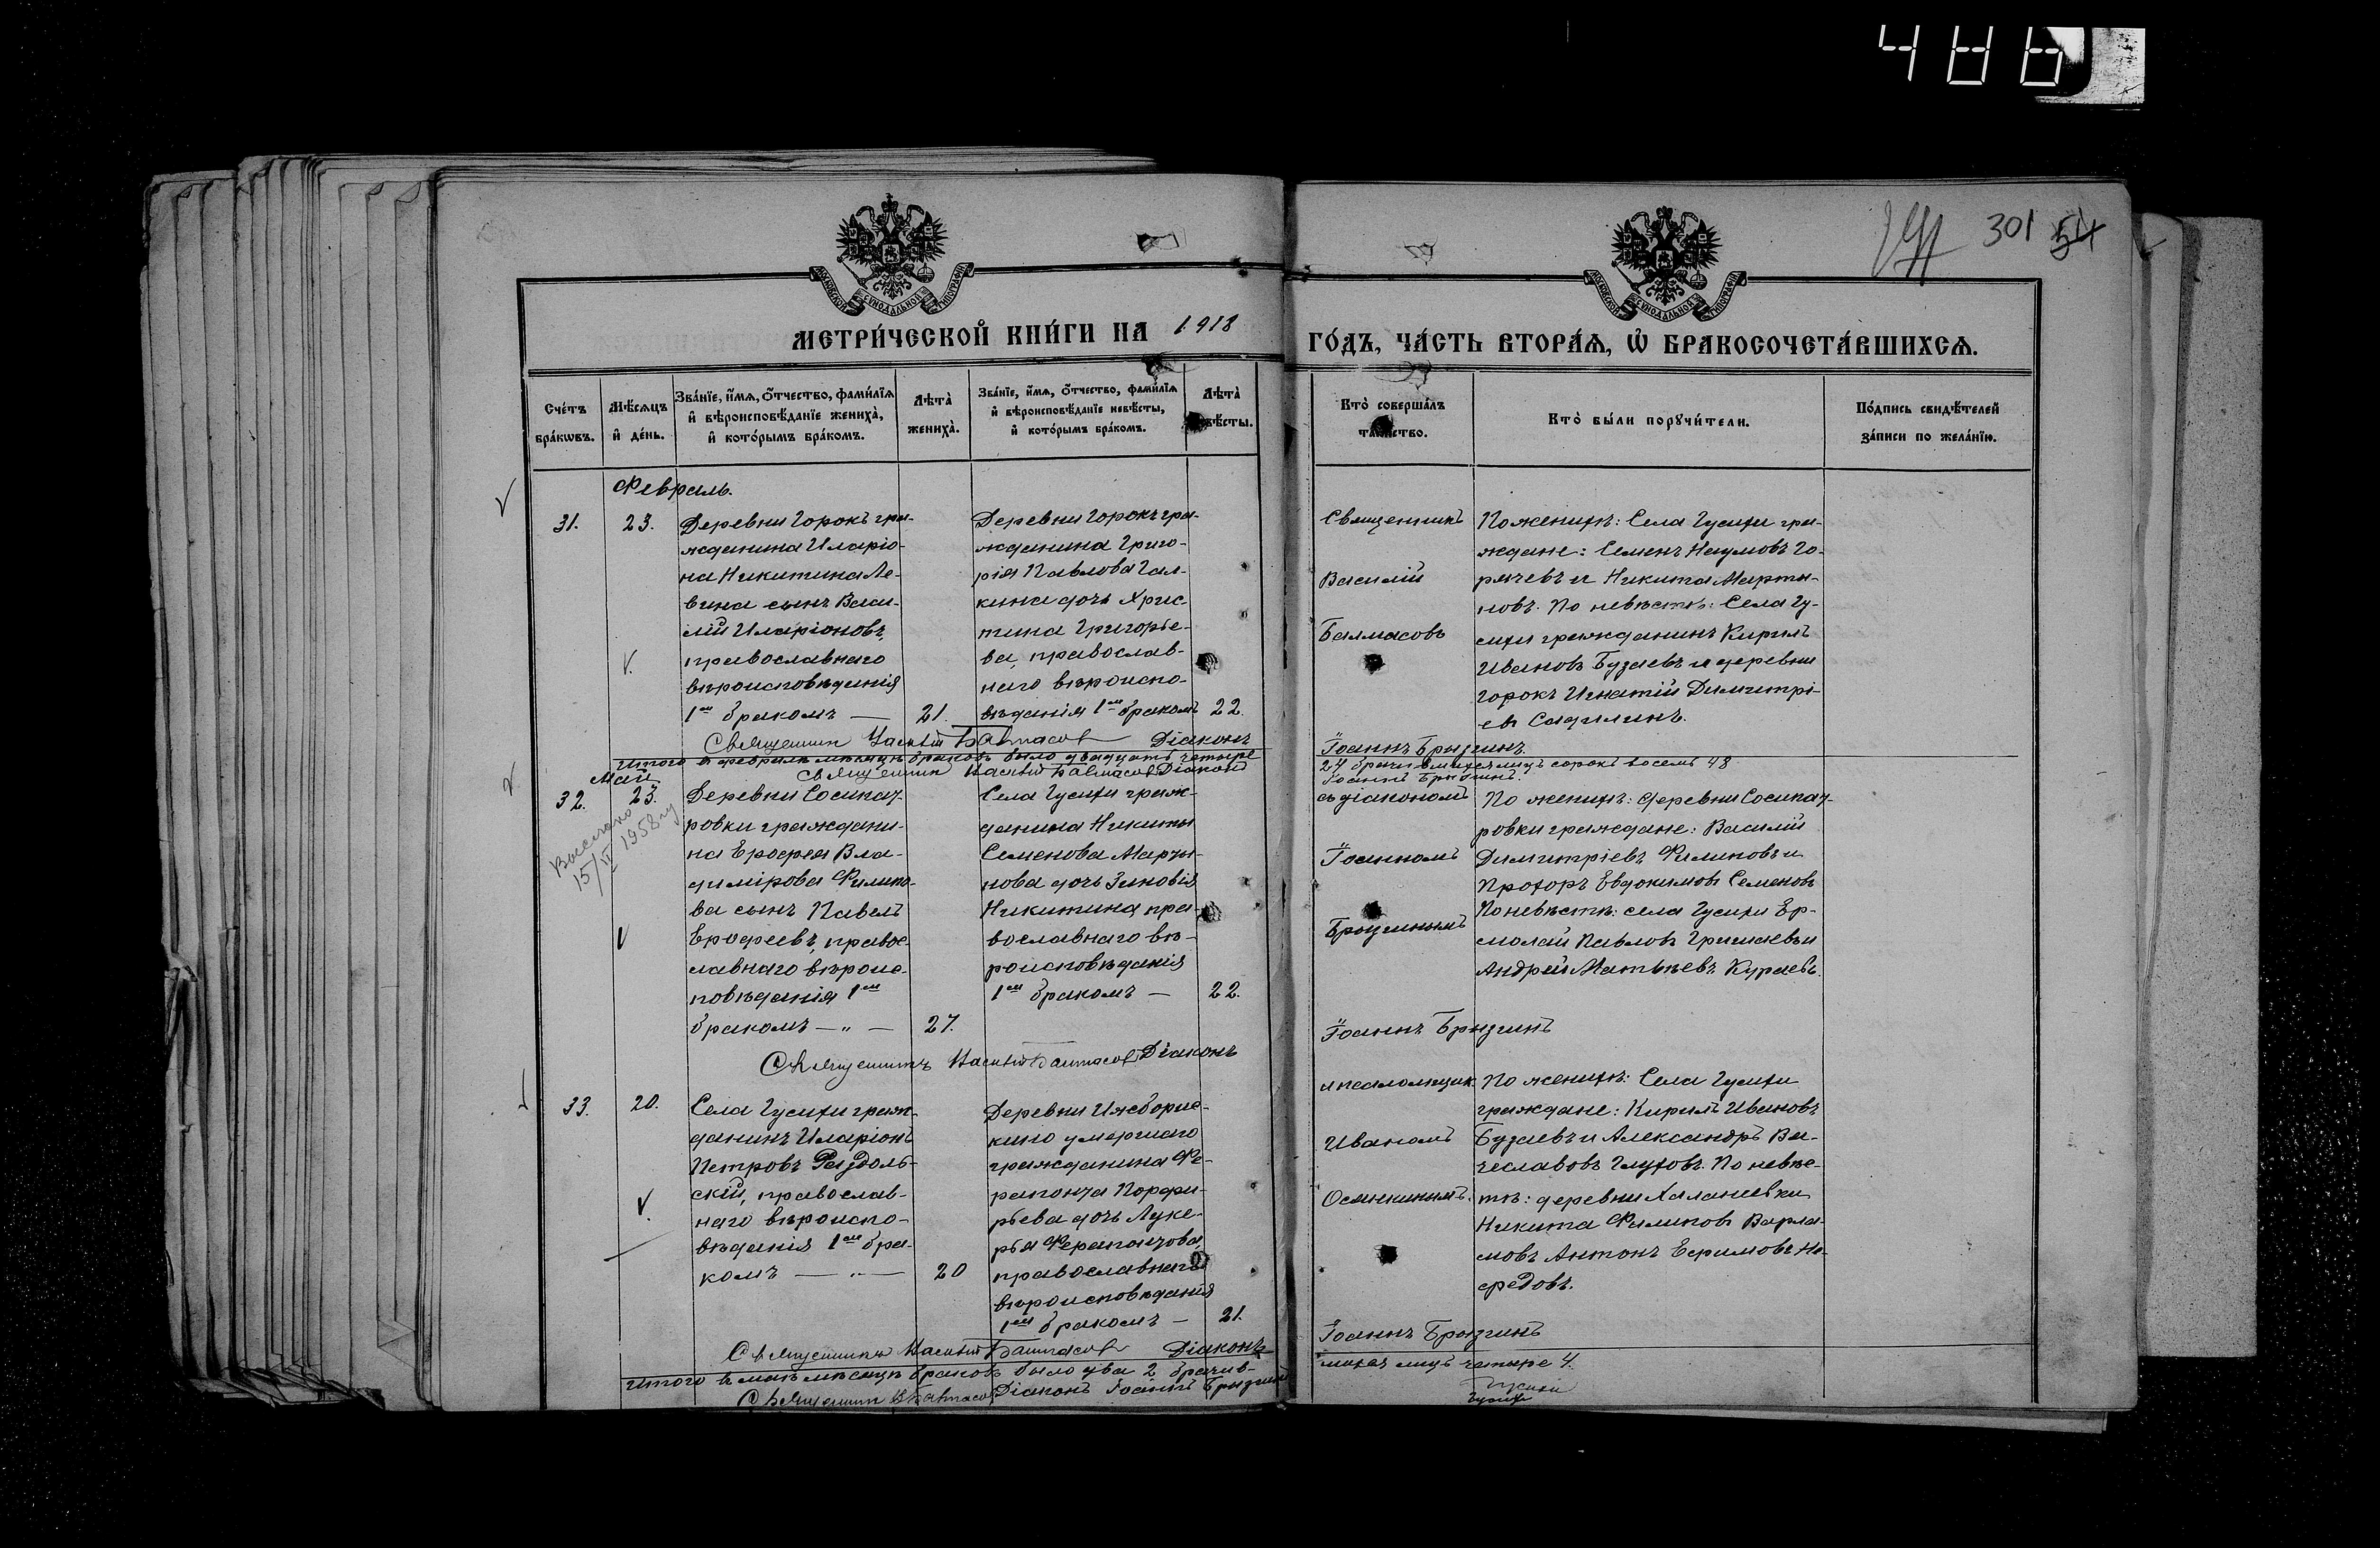 486
301 54
МОСКОВСКОЙ СУНОДАЛЬНОЙ ТИПОГРАФІИ
МОСКОВСКОЙ СУНОДАЛЬНОЙ ТИПОГРАФІИ
МЕТРИ́ЧЕСКОЙ КНИ́ГИ НА 1918
ГО́ДЪ, ЧА́СТЬ ВТОРА́Ѧ, Ѡ҆ БРАКОСОЧЕТА́ВШИХСѦ.
Сче́тъ бра́кѡвъ.
Мѣ́сѧцъ и҆ де́нь.
Зва́нїе, и҆́мѧ, ѻ҆́тчество, фами́лїѧ
и҆ вѣроисповѣ́данїе жениха̀,
и҆ кото́рымъ бра́комъ.
Лѣта̀ жениха̀.
Зва́нїе, и҆́мѧ, ѻ҆́тчество, фами́лїѧ
и҆ вѣроисповѣ́данїе невѣ́сты,
и҆ кото́рымъ бра́комъ.
Лѣта̀ вѣ́сты.
Кто̀ соверша́лъ
та ство.
Кто̀ бы́ли порꙋчи́тели.
По́дпись свидѣ́телей
за́писи по жела́нїю.
Февраль.
31.
23.
Деревни Горокъ гра-
жданина Иларіо-
на Никитина Ле-
вина сынъ Васи-
лій Иларіоновъ,
православнаго
вѣроисповѣданія
1ым бракомъ —
21.
Деревни Горокъ гра-
жданина Григо-
рія Павлова Гал-
кина дочь Хрис-
тина Григорье-
ва, православ-
наго вѣроиспо-
вѣданія 1ым бракомъ
22.
Священникъ
Василій
Балмасовъ
По женихѣ: Села Гусихи гра-
ждане: Семенъ Наумовъ Го-
рячевъ и Никита Марты-
новъ. По невѣстѣ: Села Гу-
сихи гражданинъ Кирилъ
Ивановъ Бузаевъ и деревни
Горокъ Игнатій Димитрі-
евъ Садилинъ.
Священник Василій Балмасов Діаконъ
Іоаннъ Брызгинъ.
Итого в февралѣ мѣсяцѣ браковъ было двадцать четыре
24 лицъ сорокъ восемь 48
Священник Василій Балмасов Діаконъ
Іоаннъ Брызгинъ.
Май
32.
23.
Выслано
15/VI 1958 г
Деревни Сосипат-
ровки граждани-
на Ерофея Вла-
диміроваФилипо-
ва сынъ Павелъ
Ерофеевъ, правос-
лавнаго вѣроис-
повѣданія 1ым
бракомъ — „ —
27.
Села Гусихи граж-
данина Никиты
Семенова Марты-
нова дочь Зиновія
Никитина пра-
вославнаго вѣ-
роисповѣданія
1ым бракомъ —
22.
съ діакономъ
Іоанномъ
Брызгинымъ
По женихѣ: деревни Сосипат-
ровки граждане: Василій
Димитріевъ Филиповъ и
Прохоръ Евдокимовъ Семеновъ
По невѣстѣ: села Гусихи Ер-
молай Павловъ Гришаевъ и
Андрей Матвѣевъ Кураевъ.
Священникъ Василій Балмасов Діаконъ
Іоаннъ Брызгинъ
33.
20.
Села Гусихи граж-
данинъ Иларіонъ
Петровъ Раздоль-
скій, православ-
наго вѣроиспо-
вѣданія 1ым бра-
комъ — „ —
20
Деревни Ижборис-
кино умершаго
гражданина Фе-
рапонта Порфи-
рьева дочь Луке-
рья Ферапонтова,
православнаго
вѣроисповѣданія
1ым бракомъ —
21.
и псаломщик.
Иваномъ
Осанкинымъ.
По женихѣ: Села Гусихи
граждане: Кирилъ Ивановъ
Бузаевъ и Александръ Вя-
чеславовъ Глуховъ. По невѣс-
тѣ: деревни Халанеевки
Никита Филиповъ Варла-
мовъ Антонъ Ефимовъ Не-
федовъ.
Священникъ Василій Балмасов Діаконъ
Іоаннъ Брызгинъ
Итого в маѣ мѣсяцѣ браковъ было два 2 брачив-
шихся лицъ четыре 4.
Священник В Балмасов Діаконъ Іоаннъ Брызгинъ
Гусихи
Гусихи